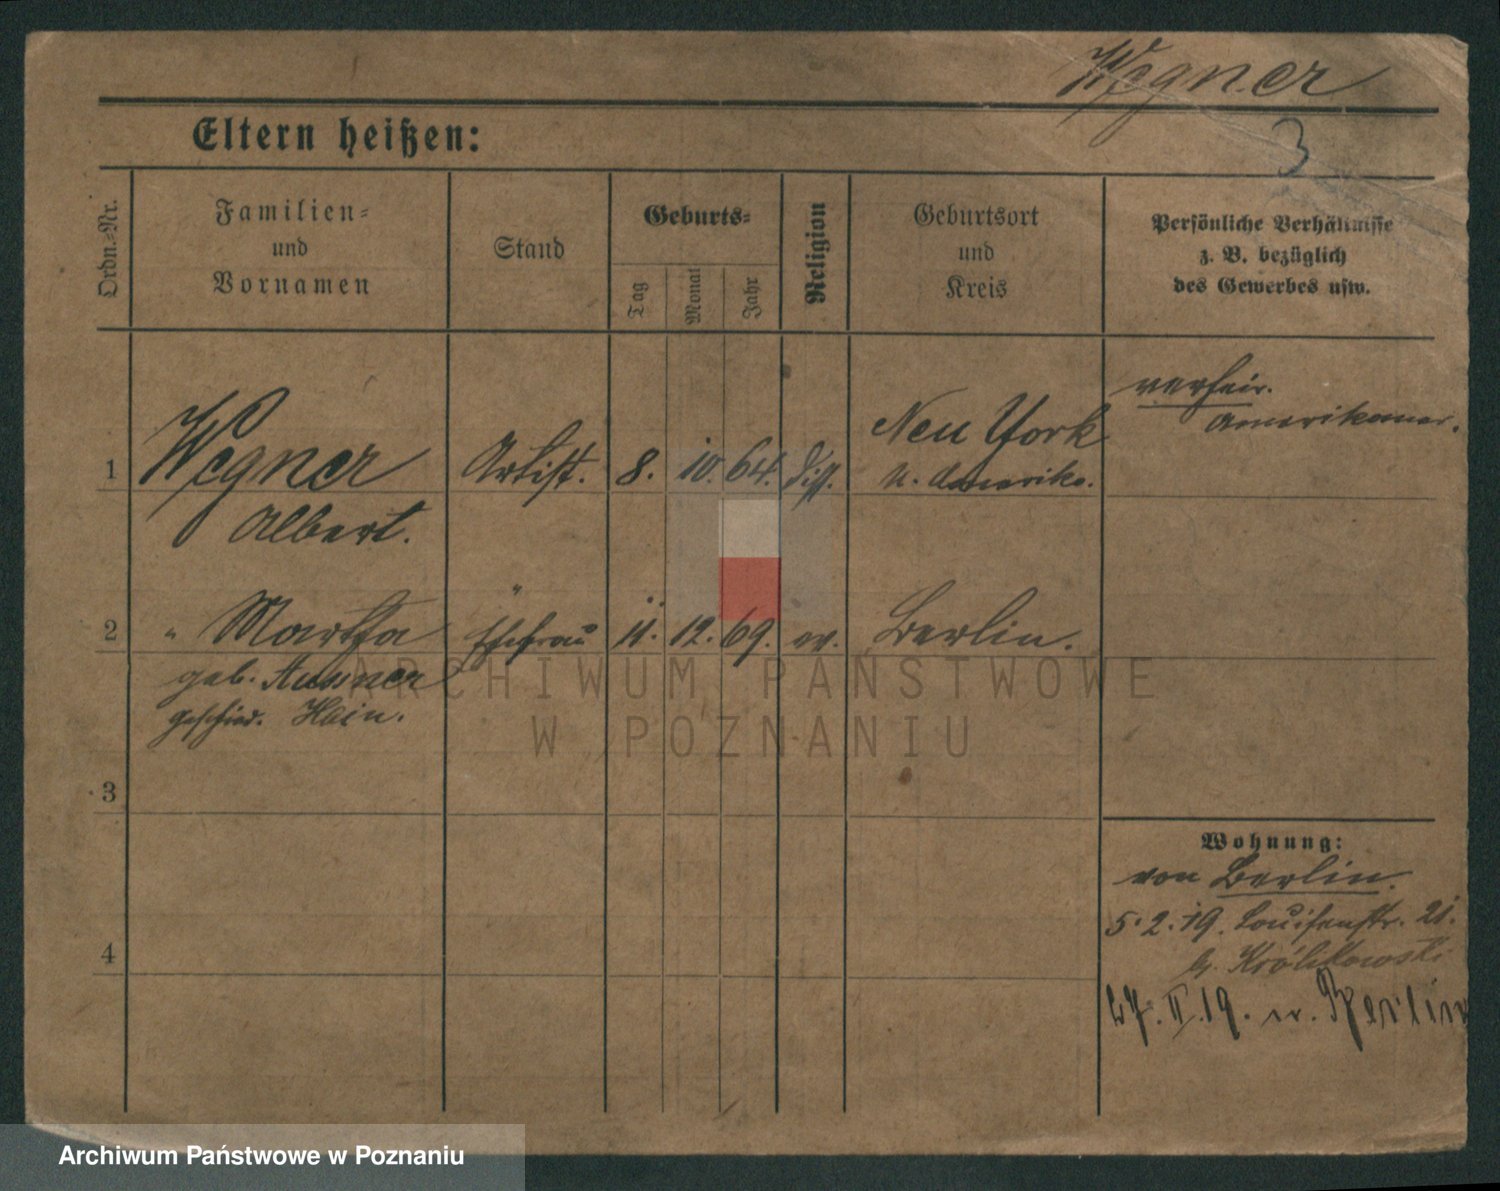 Wegner
3
Eltern heißen:
Ordn.=Nr.
Familien=
und
Vornamen
Stand
Geburts=
Tag
Monat
Jahr
Religion
Geburtsort
und
Kreis
Persönliche Verhältnisse
z. B. bezüglich
des Gewerbes usw.
verheir.
Amerikaner.
1 Wegner Artist. 8. 10. 64. diss. New York
N. Amerika.
Albert.
2 " Martha Ehefrau 11. 12. 69. ev. Berlin.
geb.
geschied. Hein.
ARCHIWUM PAŃSTWOWE
W POZNANIU
3
Wohnung:
von Berlin.
5.2.19. Louisenstr. 21.
b. Królikowski
4
27.II.19. n. Berlin
Archiwum Państwowe w Poznaniu